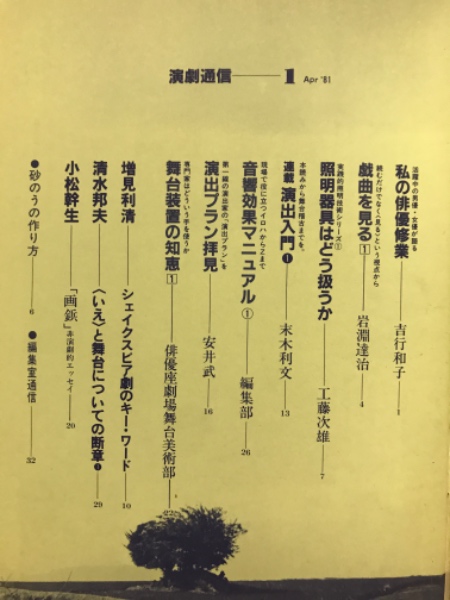 演劇通信——1 Apr '81
活躍中の男優・女優が語る
私の俳優修業——吉行和子——1
読むだけでなく〈見る〉という視点から
戯曲を見る①——岩淵達治——4
実践的照明技術シリーズ①
照明器具はどう扱うか——工藤次雄——7
本読みから舞台稽古までを。
連載 演出入門❶——末木利文——13
現場で役に立つイロハからZまで
音響効果マニュアル①——編集部——26
第一線の演出家の「演出プラン」を
演出プラン拝見——安井武——16
専門家はどういう手を使うか
舞台装置の知恵①——俳優座劇場舞台美術部——22
増見利清 シェイクスピア劇のキー・ワード——10
清水邦夫 〈いえ〉と舞台についての断章❶——29
小松幹生 「画鋲」非演劇的エッセイ——20
●砂のうの作り方——6
●編集室通信——32